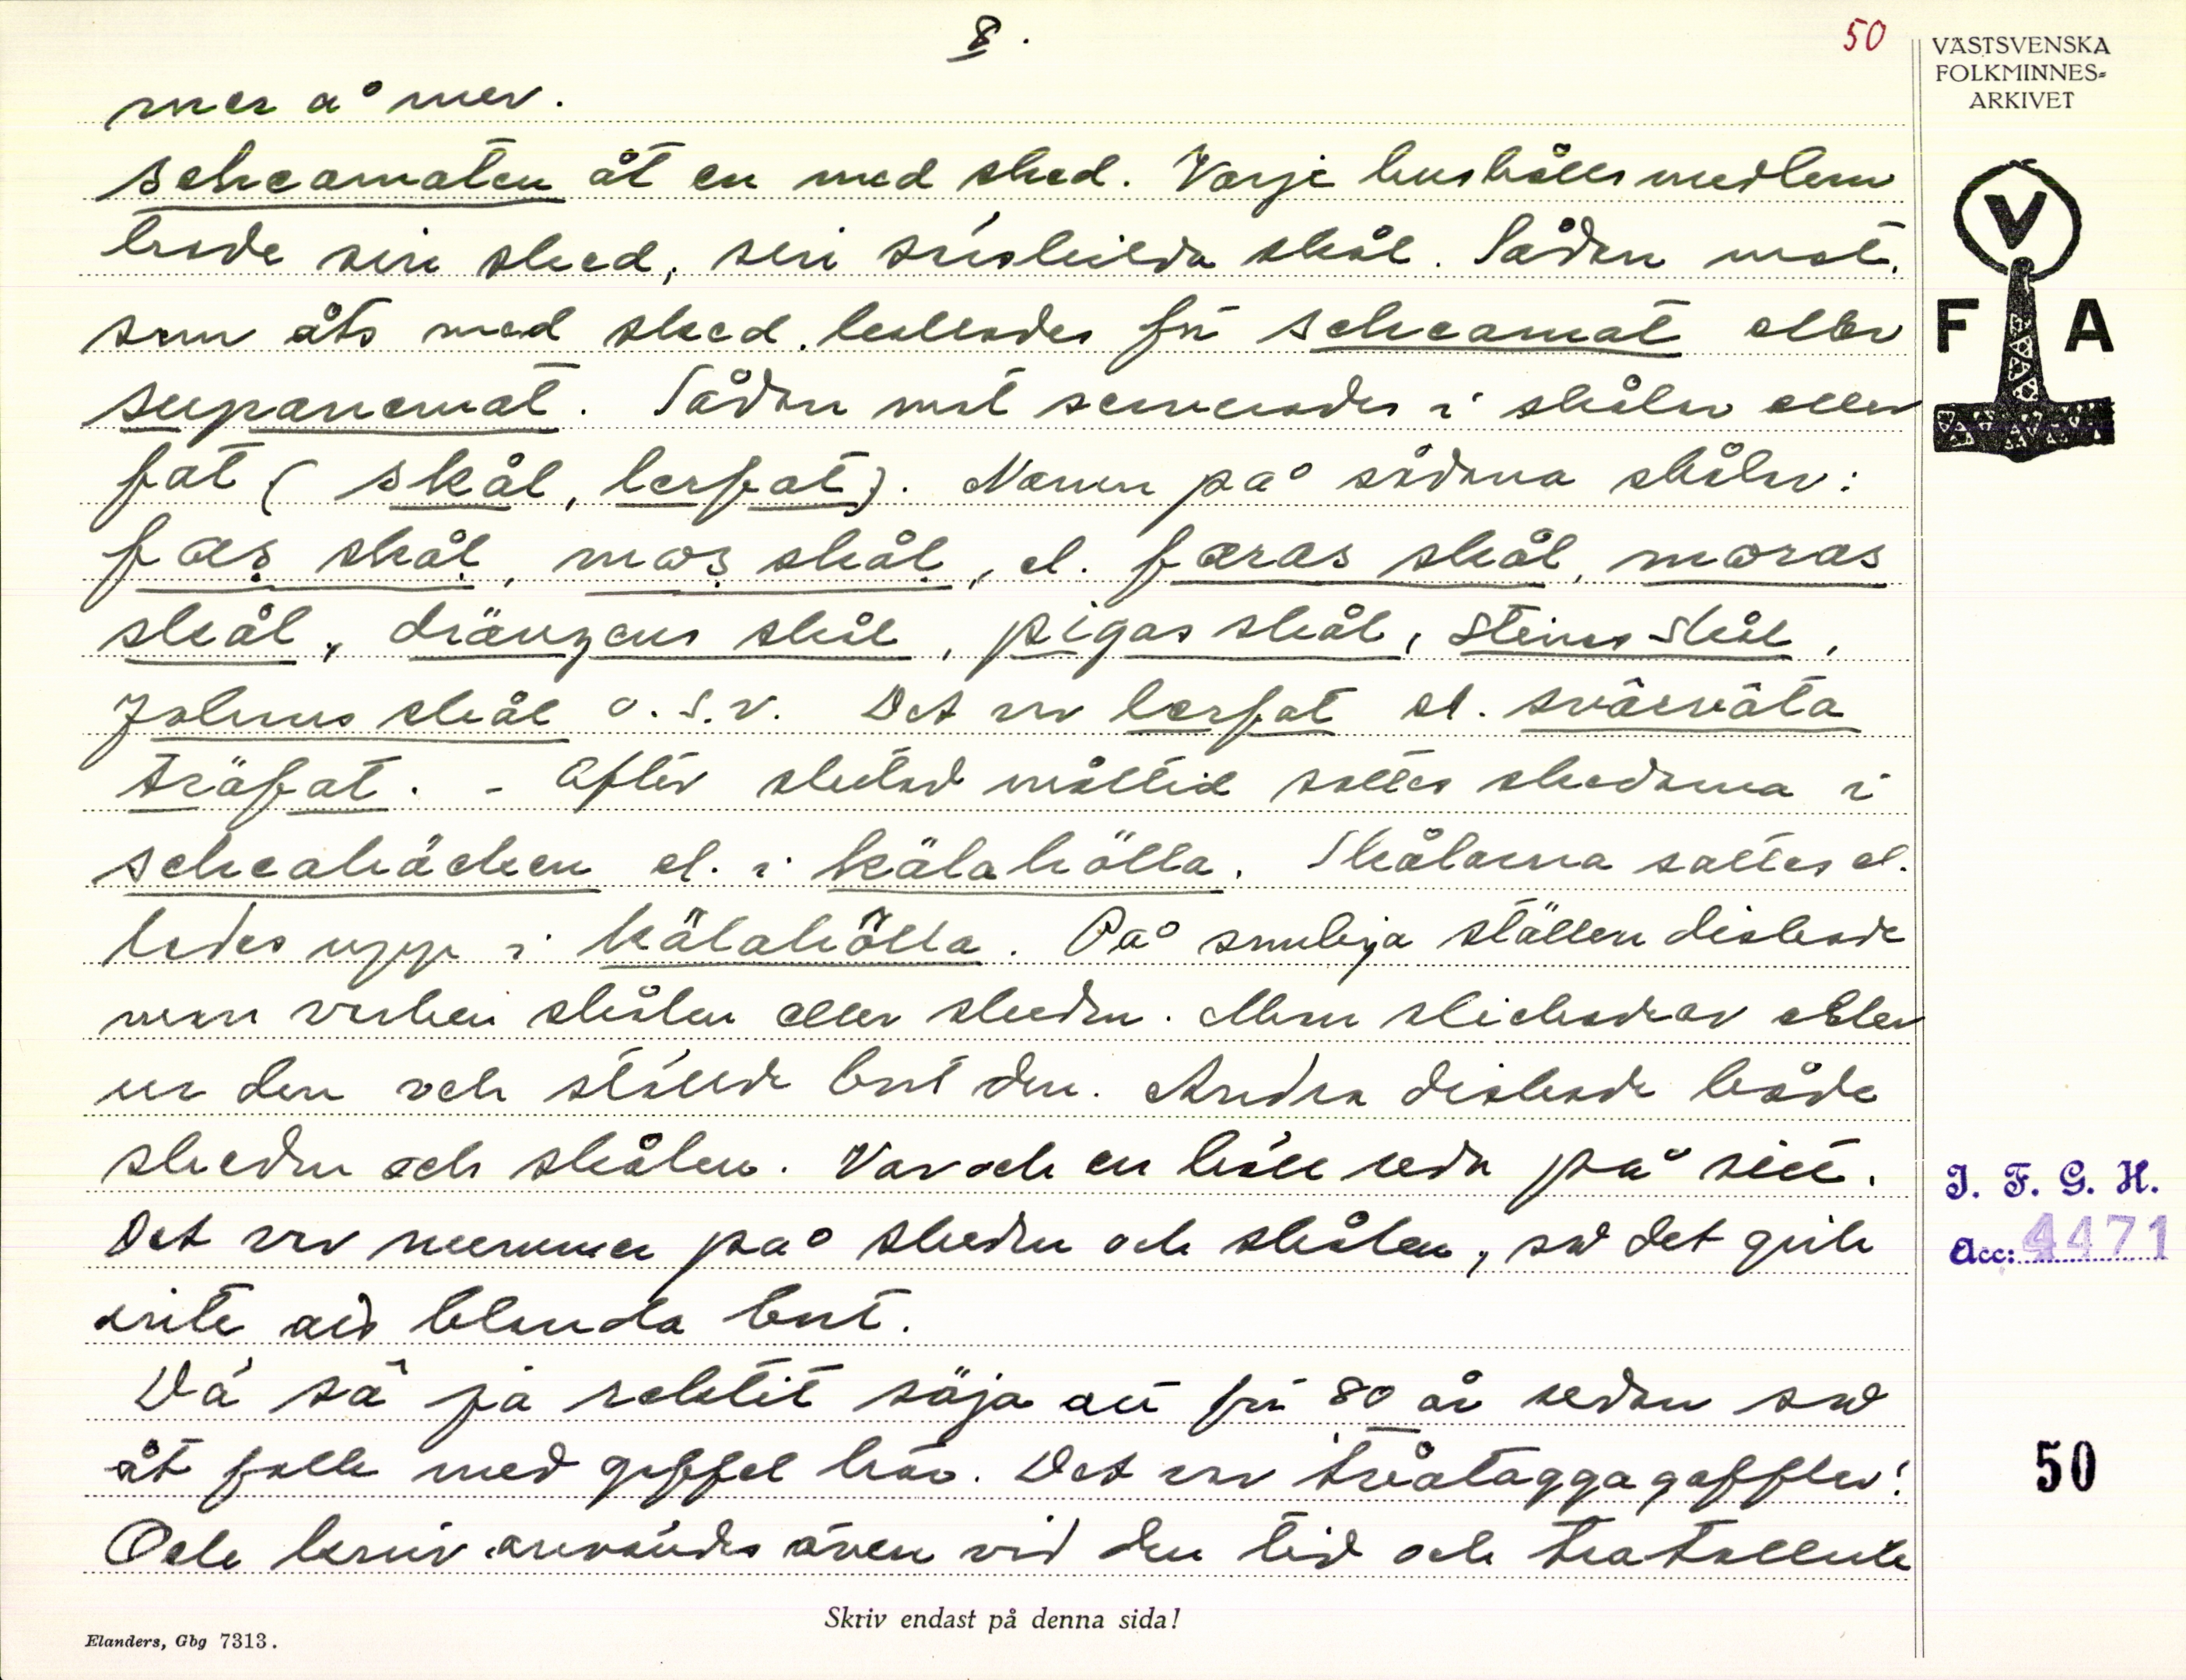 8.
50
VÄSTSVENSKA
FOLKMINNES-
ARKIVET
mer å mer.
scheamaten åt en med sked. Varje hushållsmedlem
hade sin sked, sin särskilda skål. Sådan mat,
som åts med sked kallades för scheamat eller
supanemat. Sådan mat serverades i skålar eller
fat (skål, lerfat). Namn på sådana skålar:
faes skål, mors skål, el. færas skål, moras
skål, drängens skål, pigas skål, Steins skål,
Johans skål o.s.v. Det var lerfat el. svärväta
träfat. - Efter slutad måltid sattes skedarna i
scheahäcken el. i kälahölla. Skålarna sattes el.
lades upp i kälahölla. På snuskiga ställen diskade
man varken skålen eller skeden. Man slickade av eller
ur den och ställde bort den. Andra diskade både
skeden och skålen. Var och en höll reda på sitt.
Det var nummer på skeden och skålen, så det gick
inte att blanda bort.
Dä sä ja rektit säja att för 80 år sedan så
åt folk med gaffel här. Det var tvåtagga gaffler!
Och kniv användes även vid den tid och
V
F A
I. F. G. H.
Acc: 4471
50
Skriv endast på denna sida!
Elanders, Gbg 7313.